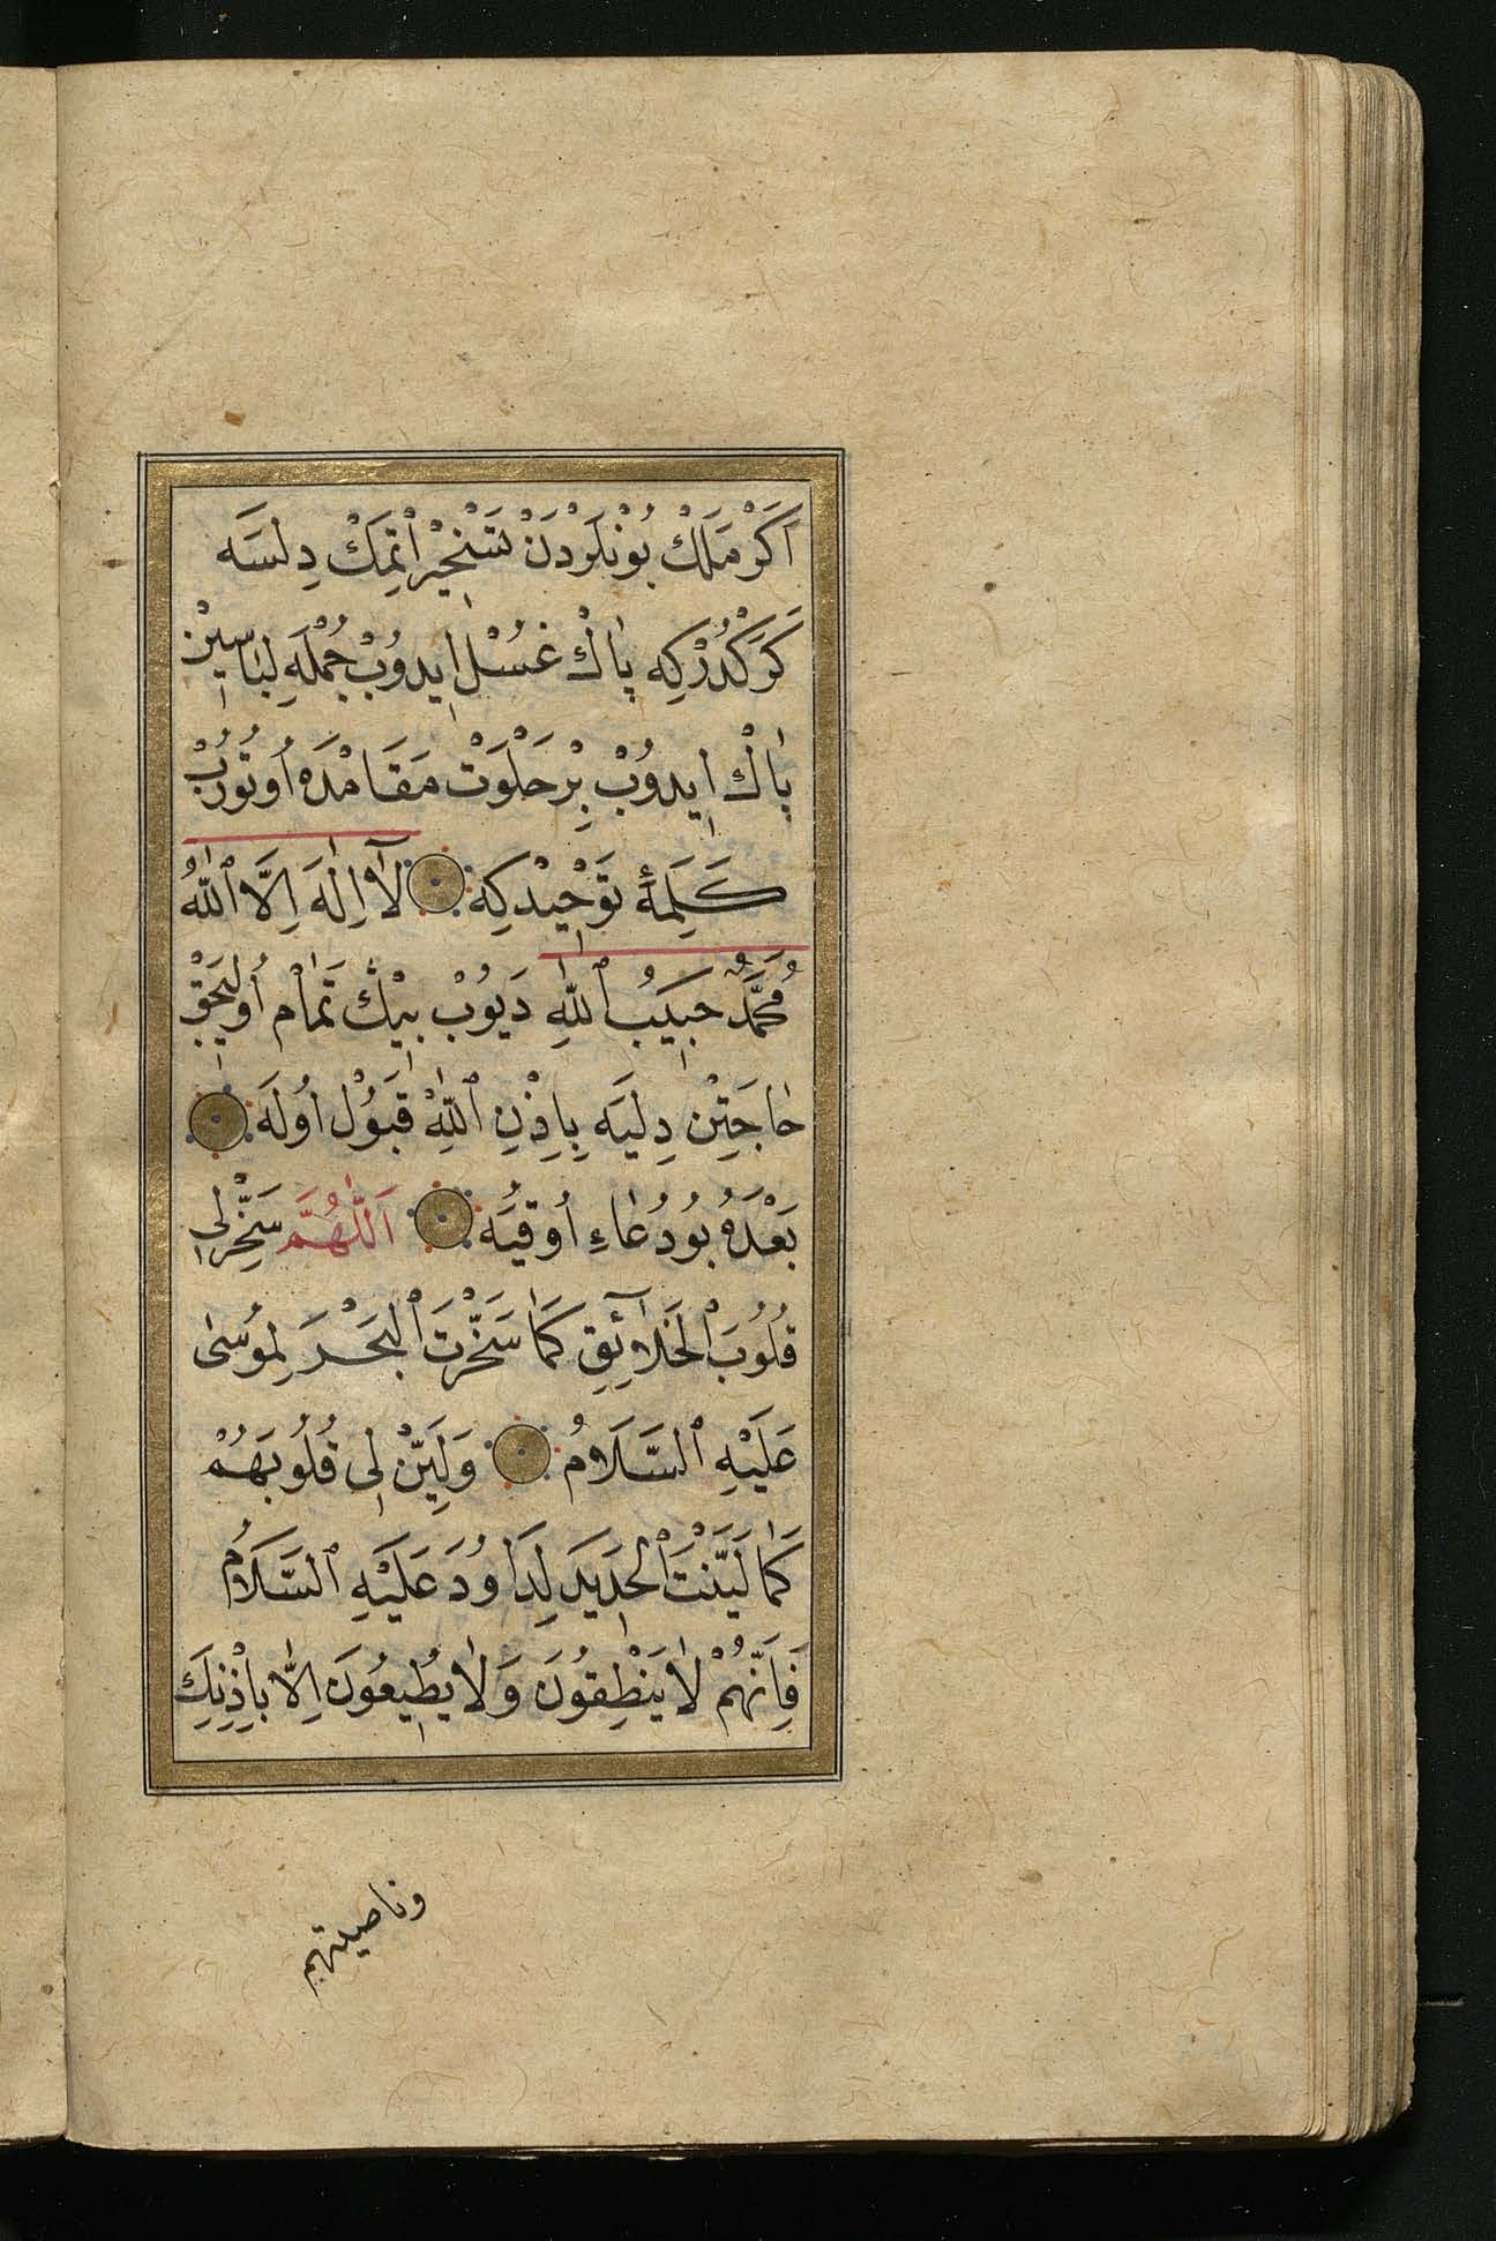 اَكَرْ مَلَكْ بُونْلَرْدَنْ تَسْخِيرْ اِتْمَكْ دِلْسَه
كَرَكْدُرْكِه پَاكْ غُسْلْ اِيدُوبْ جُمْلَهِ لِبَاسِينْ
پَاكْ اِيدُوبْ بِرْ خَلْوَتْ مَقَامْدَه اُوتُورُبْ
كَلِمَهٔ تَوْحِيدْكِه لَآ اِلٰهَ اِلَّا ٱللّٰهُ
مُحَمَّدٌ حَبِيبُ ٱللّٰهِ دَيُوبْ بِيْڭْ تَمَامْ اُولِيجَقْ
حَاجَتِنْ دِلَيَه بِاِذْنِ ٱللّٰهِ قَبُولْ اُولَه
بَعْدَهُ بُو دُعَاءِ اُوقِيَه اَللّٰهُمَّ سَخِّرْلِى
قُلُوبَ ٱلْخَلَآئِقِ كَمَا سَخَّرْتَ ٱلْبَحْرَ لِمُوسٰى
عَلَيْهِ ٱلسَّلَامُ وَلَيِّنْ لِى قُلُوبَهُمْ
كَمَا لَيَّنْتَ ٱلْحَدِيدَ لِدَاوُدَ عَلَيْهِ ٱلسَّلَامُ
فَاِنَّهُمْ لَا يَنْطِقُونَ وَلَا يُطِيعُونَ اِلَّا بِاِذْنِكَ
وناصيتهم